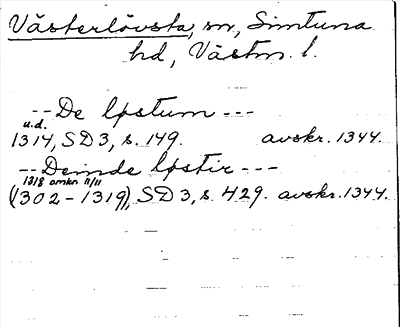 Västerlövsta, sn, Simtuna
hd, Västm. l.
-- De løstum ---
u.d.
1314, SD 3, s. 149. avskr. 1344.
-- Deinde løstir ---
1318 omkr 11/11
(1302-1319), SD 3, s. 429. avskr. 1344.